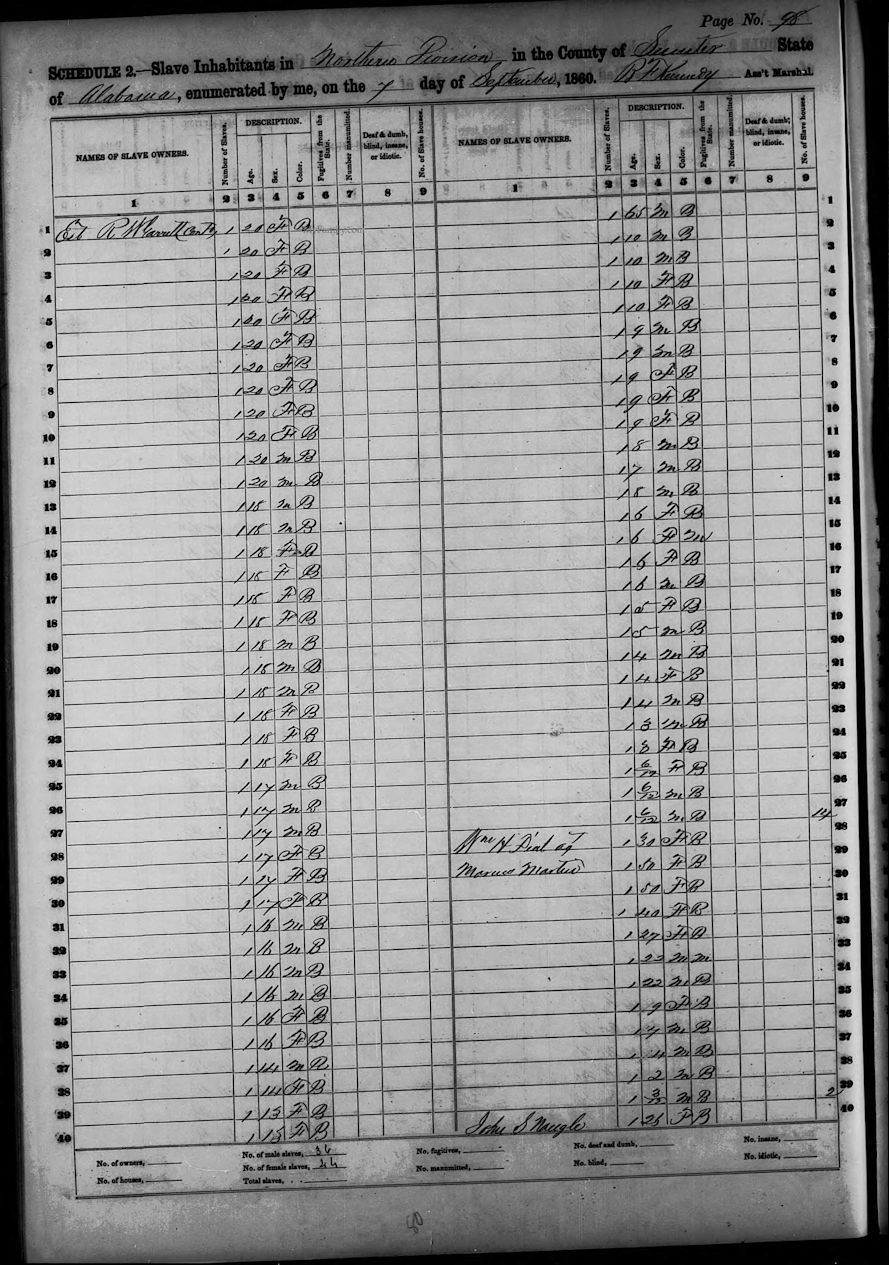 Page No. 98
SCHEDULE 2.—Slave Inhabitants in Northern Division in the County of Sumter State
of Alabama, enumerated by me, on the 7 day of September, 1860. Ass't Marshal.
NAMES OF SLAVE OWNERS. Number of Slaves. DESCRIPTION. Age. Sex. Color. Fugitives from the State. Number manumitted. Deaf & dumb, blind, insane, or idiotic. No. of Slave houses. NAMES OF SLAVE OWNERS. Number of Slaves. DESCRIPTION. Age. Sex. Color. Fugitives from the State. Number manumitted. Deaf & dumb, blind, insane, or idiotic. No. of Slave houses.
1 2 3 4 5 6 7 8 9 1 2 3 4 5 6 7 8 9
1 Est R W 1 20 F B 1 65 m B 1
2 1 20 F B 1 10 m B 2
3 1 20 F B 1 10 m B 3
4 1 20 F B 1 10 F B 4
5 1 20 F B 1 10 F B 5
6 1 20 F B 1 9 m B 6
7 1 20 F B 1 9 m B 7
8 1 20 F B 1 9 F B 8
9 1 20 F B 1 9 F B 9
10 1 20 F B 1 9 F B 10
11 1 20 m B 1 8 m B 11
12 1 20 m B 1 7 m B 12
13 1 18 m B 1 8 m B 13
14 1 18 m B 1 6 F B 14
15 1 18 F B 1 6 F 15
16 1 18 F B 1 6 F B 16
17 1 18 F B 1 6 m B 17
18 1 18 F B 1 5 F B 18
19 1 18 m B 1 5 m B 19
20 1 18 m B 1 4 m B 20
21 1 18 m B 1 4 F B 21
22 1 18 F B 1 4 m B 22
23 1 18 F B 1 3 m B 23
24 1 18 F B 1 3 F B 24
25 1 17 m B 1 6/12 F B 25
26 1 17 m B 1 6/12 m B 26
27 1 17 m B 1 6/12 m B 14 27
28 1 17 F B Wm H Dial ag 1 30 F B 28
29 1 17 F B Marcus Martin 1 50 F B 29
30 1 17 F B 1 50 F B 30
31 1 16 m B 1 40 F B 31
32 1 16 m B 1 27 F B 32
33 1 16 m B 1 22 m m 33
34 1 16 m B 1 22 m B 34
35 1 16 F B 1 9 F B 35
36 1 16 F B 1 7 m B 36
37 1 14 m B 1 4 m B 37
38 1 14 F B 1 2 m B 38
39 1 13 F B 1 3/12 m B 2 39
40 1 13 F B John S Naugle 1 25 F B 40
No. of owners, No. of male slaves, 36 No. fugitives, No. deaf and dumb, No. insane,
No. of houses, No. of female slaves, 44 No. manumitted, No. blind, No. idiotic,
Total slaves,
80